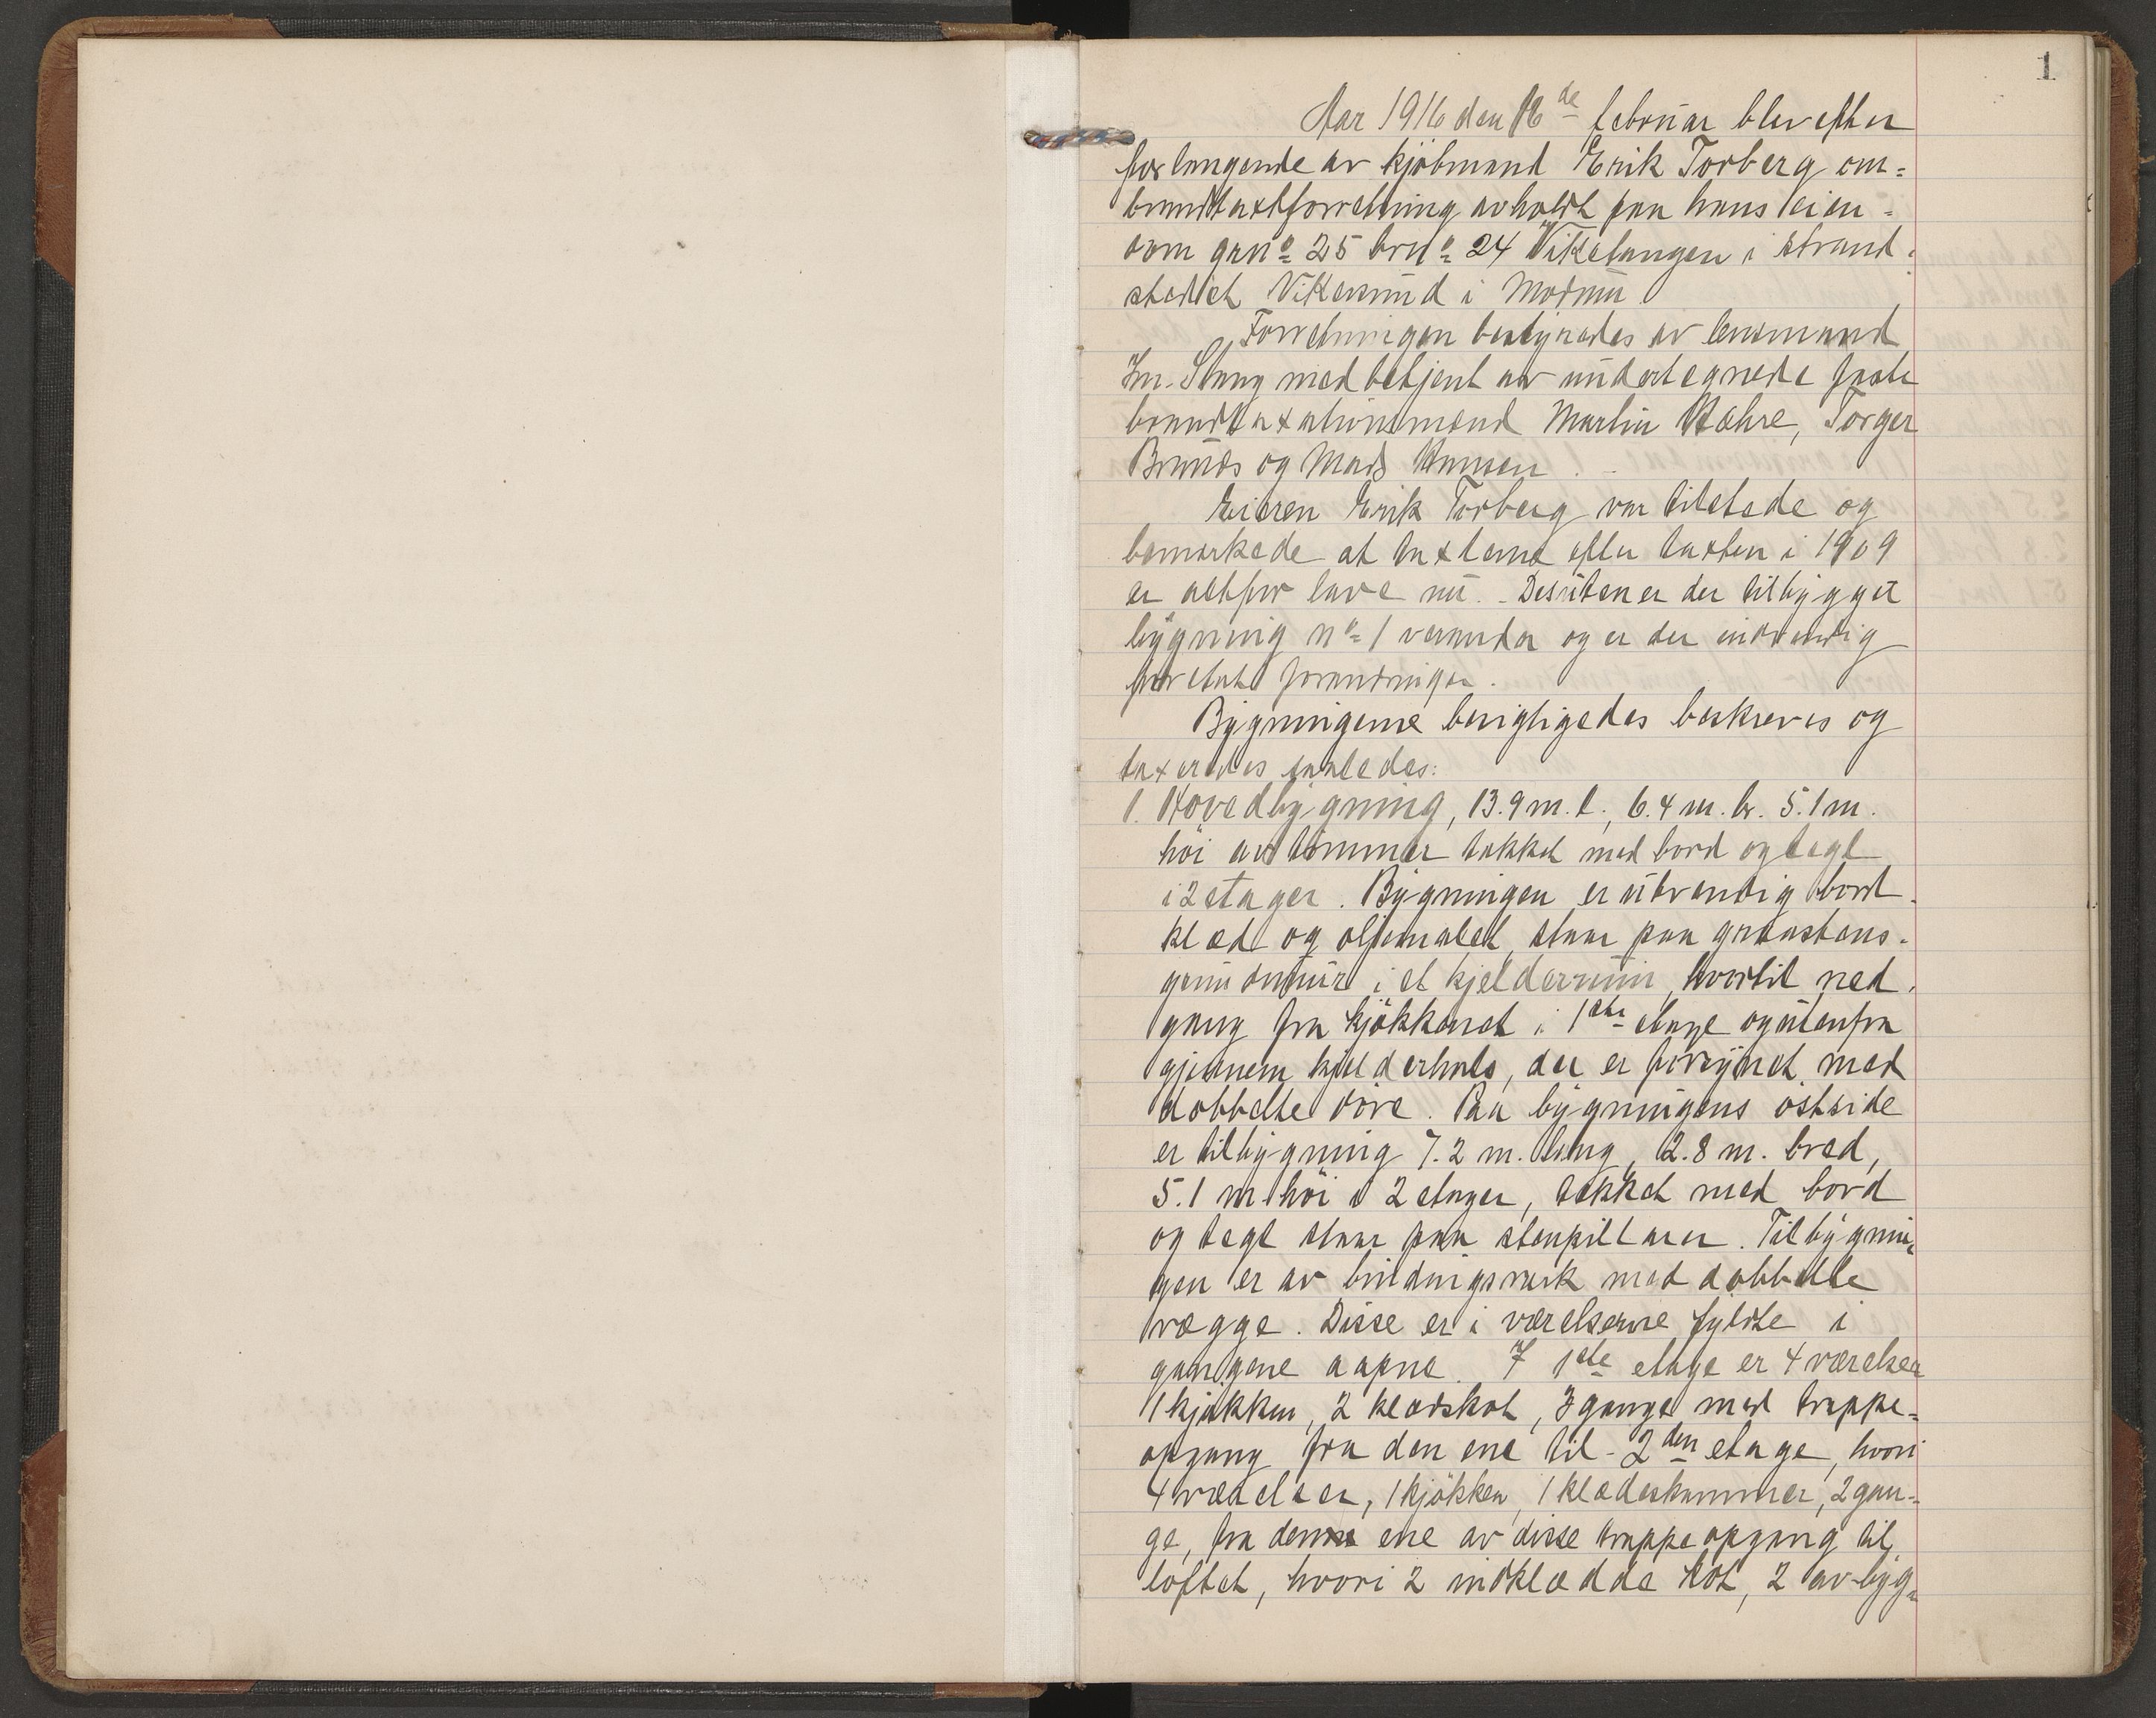 1
Aar 1916 den 16de februar blev efter
forlangende av kjöbmand Erik Torberg om=
brandtaxtforretning avholdt paa hans eien=
dom grno 25 brno 24 Viketangen i strand=
stedet Vikersund i Modum
Forretningen bestyredes av lensmand
Jn. Stang med betjent av undertegnede faste
brandtaxationsmænd Martin Hæhre, Torger
Brunæs og Mads Hansen. -
Eieren Erik Torberg var tilstede og
bemerkede at taxterne efter taxten i 1909
er altfor lave nu. - Desuten er der tilbygget
bygning no 1 veranda og er der indvendig
foretat forandringer.
Bygningerne besigtigedes beskreves og
taxeredes saaledes:
1. Hovedbygning, 13.9 m. l., 6.4 m. br. 5.1 m.
höi av tömmer tækket med bord og tegl
i 2 etager. Bygningen er utvendig bord-
klædt og oljemalet, staar paa graastens-
grundmur i et kjelderrum, hvortil ned-
gang fra kjökkenet i 1ste etage og utenfra
gjennem kjelderhals, der er forsynet med
dobbelte döre. Paa bygningens östside
er tilbygning 7.2 m. lang, 2.8 m. bred,
5.1 m höi i 2 etager, tækket med bord
og tegl staar paa stenpillarer. Tilbygnin-
gen er av bindingsverk med dobbelte
vægge. Disse er i værelserne fyldte i
gangene aapne. I 1ste etage er 4 værelser
1 kjökken, 2 klædskot, 3 gange med trappe=
opgang fra den ene til 2den etage, hvori
4 værelser, 1 kjökken, 1 klædeskammer, 2 gan-
ge, fra den ene av disse trappeopgang til
loftet, hvori 2 indklædde kot, 2 av byg=